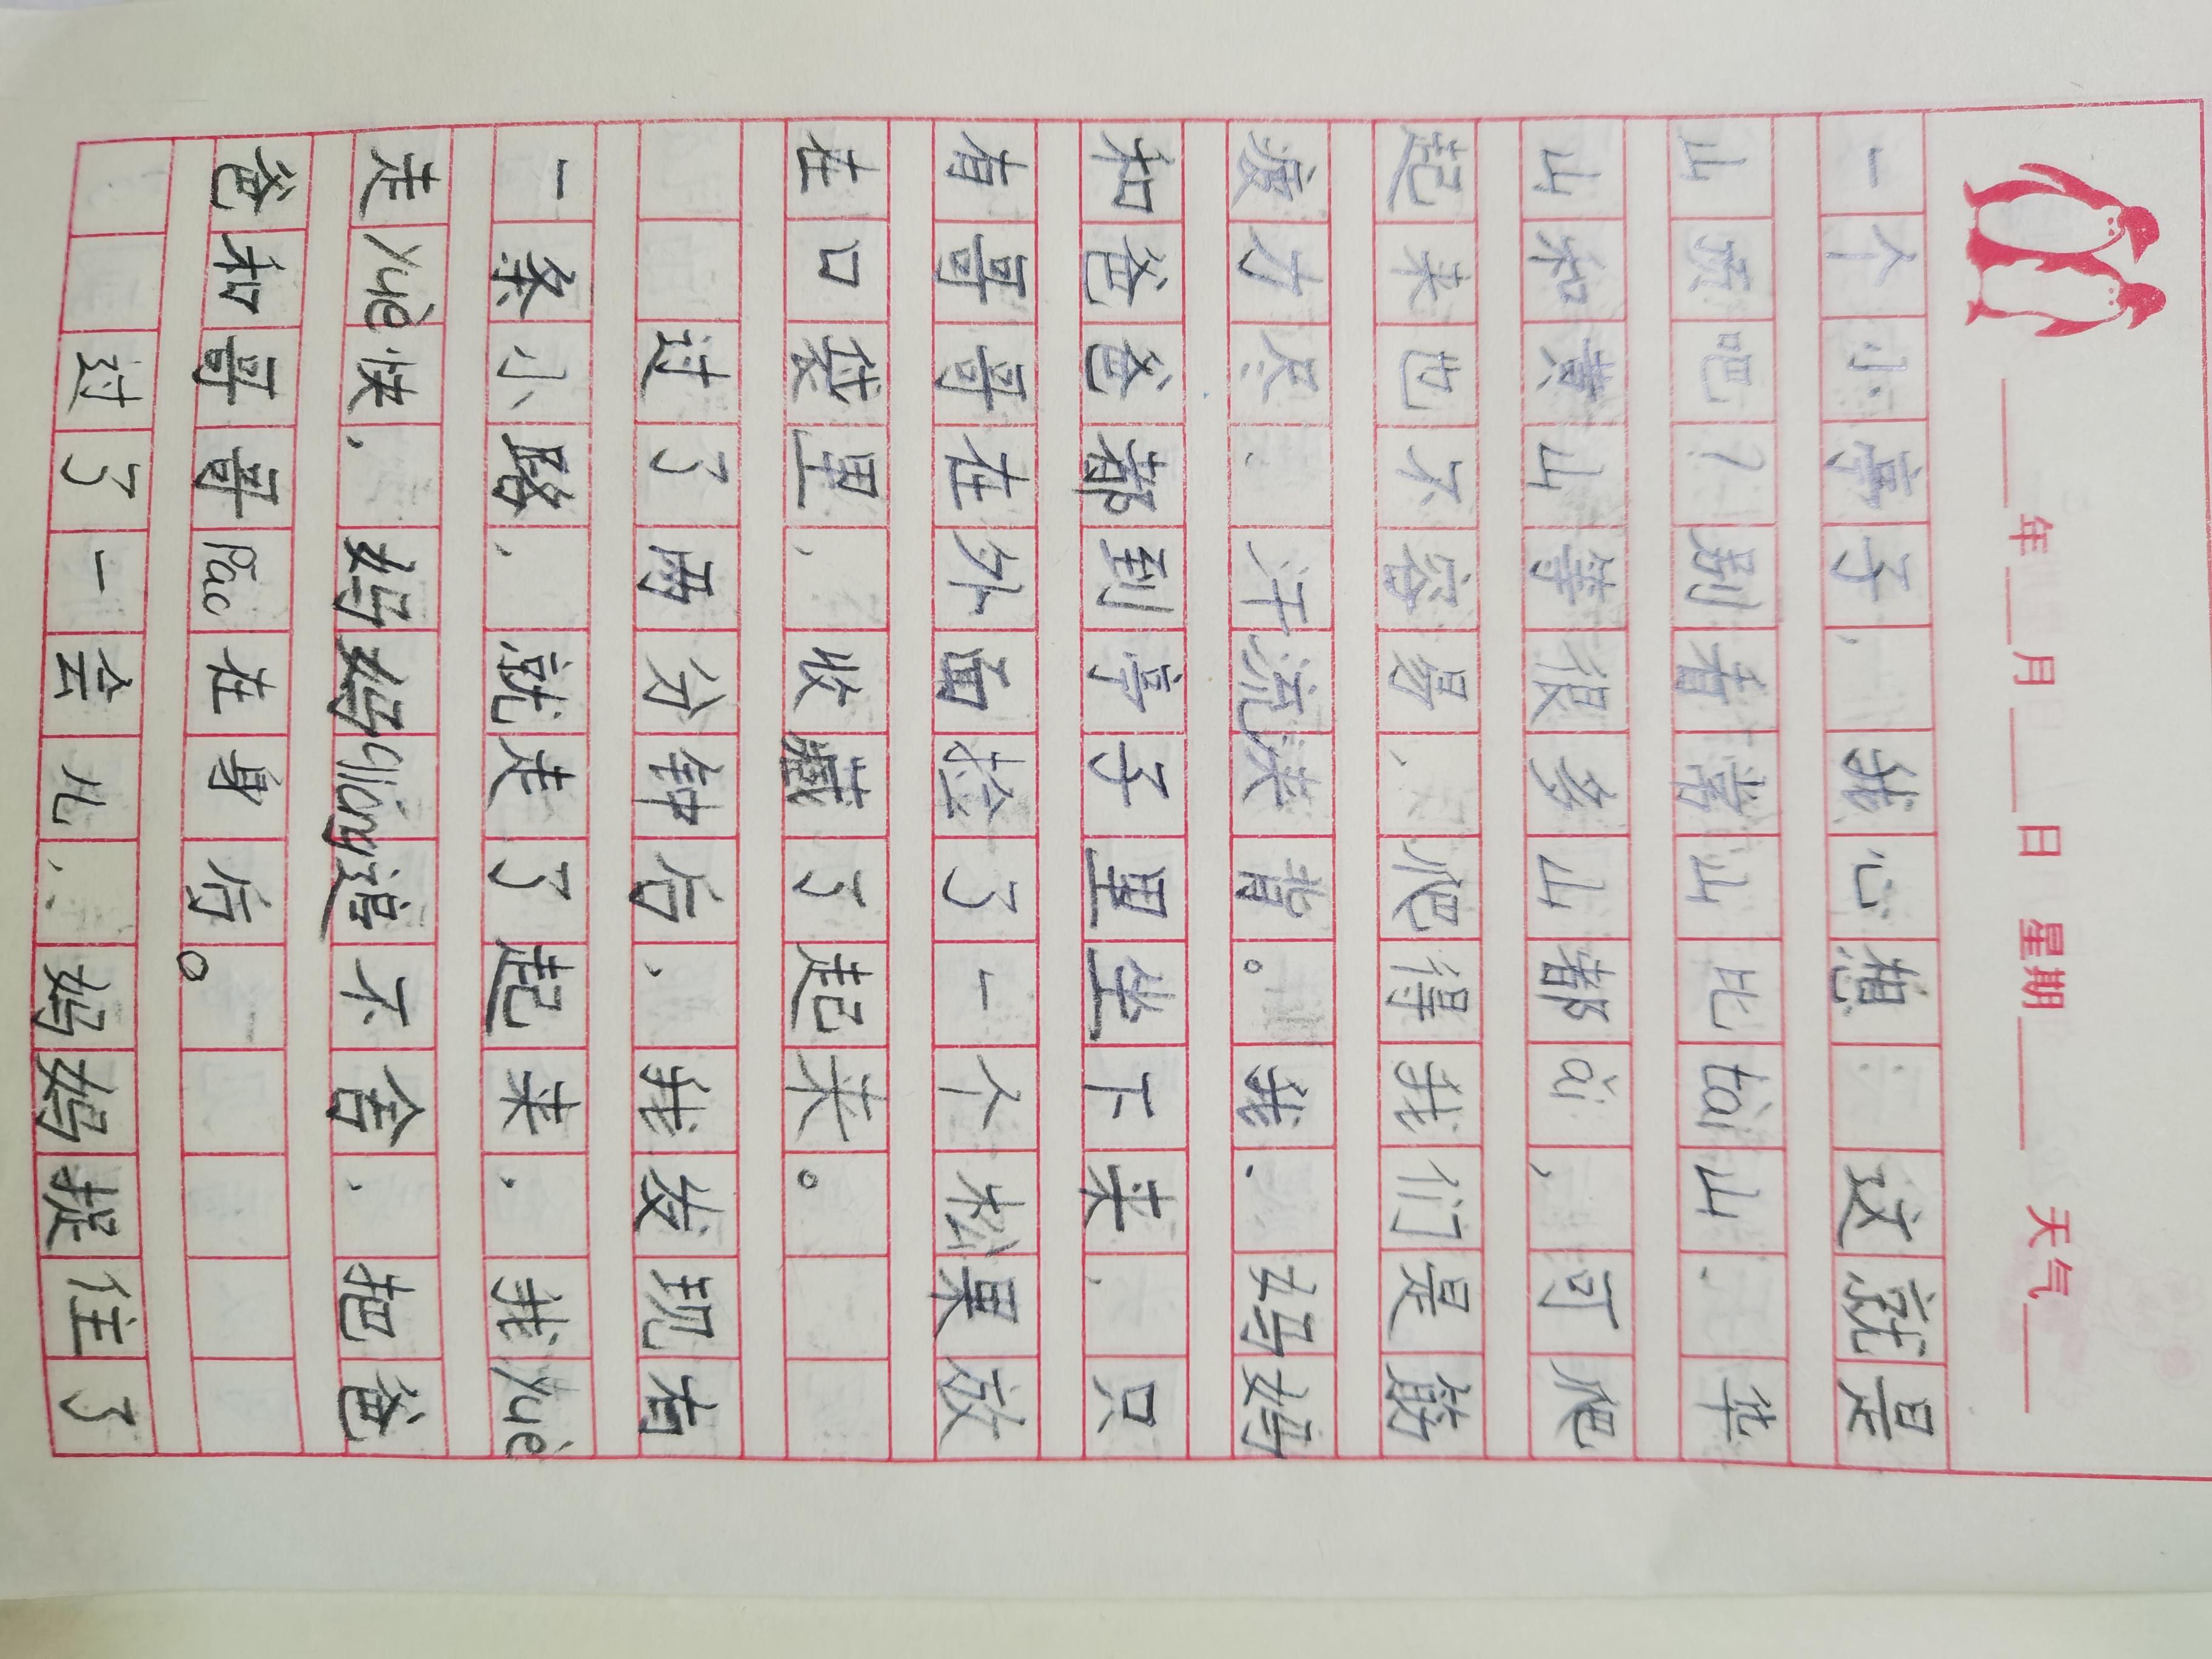 年 月 日 星期 天气
一个小亭子,我心想:这就是
山顶吧?别看常山比tài山、华
山和黄山等很多山都ǎi,可爬
起来也不容易,爬得我们是筋
疲力尽、汗流浃背。我、妈妈
和爸爸都到亭子里坐下来,只
有哥哥在外面捡了一个松果放
在口袋里,收藏了起来。
过了两分钟后,我发现有
一条小路,就走了起来,我yuè
走yuè快,妈妈qiǎng追不舍,把爸
爸和哥哥pāo在身后。
过了一会儿,妈妈捉住了